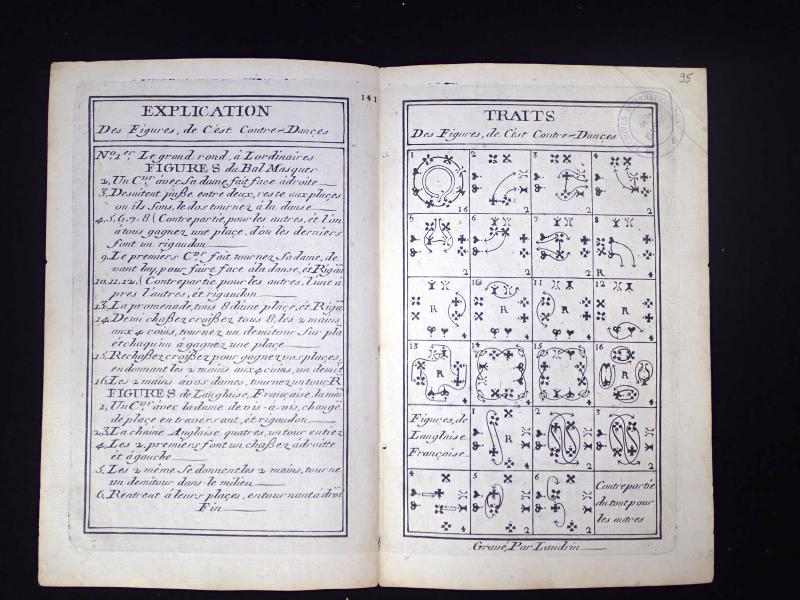 141
EXPLICATION
Des Figures, de C'est Contre=Dances
No. 1er. Le grand rond, à Lordinaires
FIGURES du Bal Masquer
2, Un Cver avec Sa dame, fait face à droite
3, Desuitent passe entre deux, reste aux places,
ou ils sons, le dos tournez à la danse
4, 5, 6, 7, 8 (Contrepartie, pour les autres, et l'on
à tous gagnez une place, d'on les derniers
font un rigaudon
9, Le premiers Cver fait tournez Sa dame, de
vant luy, pour faire face à la danse, et Rigau
10, 11, 12, (Contrepartie pour les autres, l'une à
pres l'autres, et rigaudon
13, La promenade, tous 8 d'une place, et Riga
14, Demi chassez croissez tous 8, les 2 mains
aux 4 coins, tournez un demitour Sur pla
et chaqu'un à gagnez une place
15, Rechassez croissez pour gagnez vos places,
en donnant les 2 mains aux 4 coins, un demit
16, Les 2 mains à vos daines, tournez un tour, R
FIGURES de Langlaise, Française, la mai
1, Un Cver avec la dame de vis-a-vis, change
de place en traversant, et rigaudon
2, 3, La chaine Anglaise quatres, un tour entiez
4, Les 2, premiers font un chassez à droitte
et à gauche
5, Les 2 même Se donnent les 2 mains, tourne
un demitour dans le milieu
6, Rentrent à leurs places, en tournant à droi
Fin
95
TRAITS
Des Figures, de C'est Contre=Dances
1 2 3 4
16 2 2 2
5 6 7 8
2 2 2 R 4
9 10 11 12
R R R R
4 4 4 4
13 14 15 16
R R
4 4 4 4
Figures, de
Langlaise
Française
1 2 3
R
4 2 2
4 5 6
4 2 2
Contrepartie
du tout pour
les autres
Gravé, Par Landrin